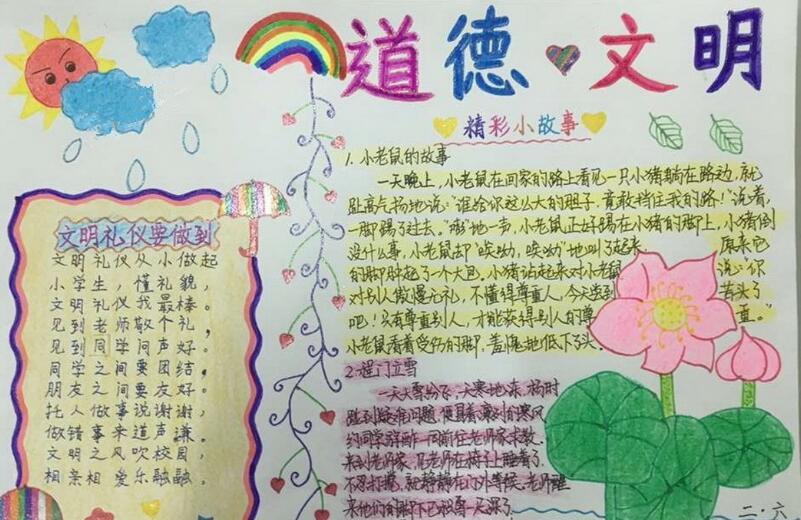 道德文明
精彩小故事
1.小老鼠的故事
一天晚上,小老鼠在回家的路上看见一只小猪躺在路边,就
趾高气扬地说:"谁给你这么大的胆子,竟敢挡住我的路!"说着,
一脚踢了过去。"嘭"地一步,小老鼠正好踢在小猪的脚上,小猪倒
没什么事,小老鼠却"唉呦,唉呦"地叫了起来。原来它
的脚肿起了一个大包,小猪站起来对小老鼠说:"你
对别人傲慢无礼,不懂得尊重人,今天尝到苦头了
吧!只有尊重别人,才能获得别人的尊重。"
小老鼠看着受伤的脚,羞愧地低下了头。
2.程门立雪
一天大雪纷飞,天寒地冻,杨时
碰到疑难问题,便冒着凛冽的寒风
约同学一同前往老师家求教,
来到老师家,见老师在椅子上睡着了,
不忍打搅,就静静在门外等候,老师醒
来他们的脚下已
文明礼仪要做到
文明礼仪从小做起
小学生,懂礼貌,
文明礼仪我最棒。
见到老师敬个礼,
见到同学问声好。
同学之间要团结,
朋友之间要友好。
托人做事说谢谢,
做错事来道声谦。
文明之风吹校园,
相亲相爱乐融融。
二·六